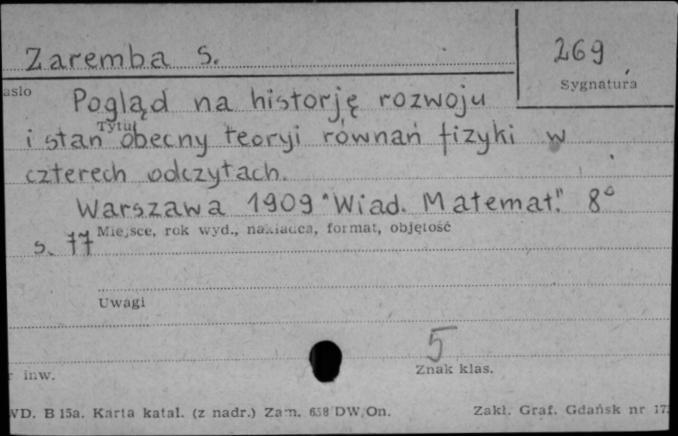 Zaremba S.
269
Sygnatura
asło
Pogląd na historję rozwoju
Tytuł
i stan obecny teoryi równań fizyki w
czterech odczytach.
Warszawa 1909 "Wiad. Matemat." 8°
Miejsce, rok wyd., nakładca, format, objętość
s. 77
Uwagi
5
Znak klas.
r inw.
WD. B 15a. Karta katal. (z nadr.) Zam. 658 DW, On.
Zakł. Graf. Gdańsk nr 17